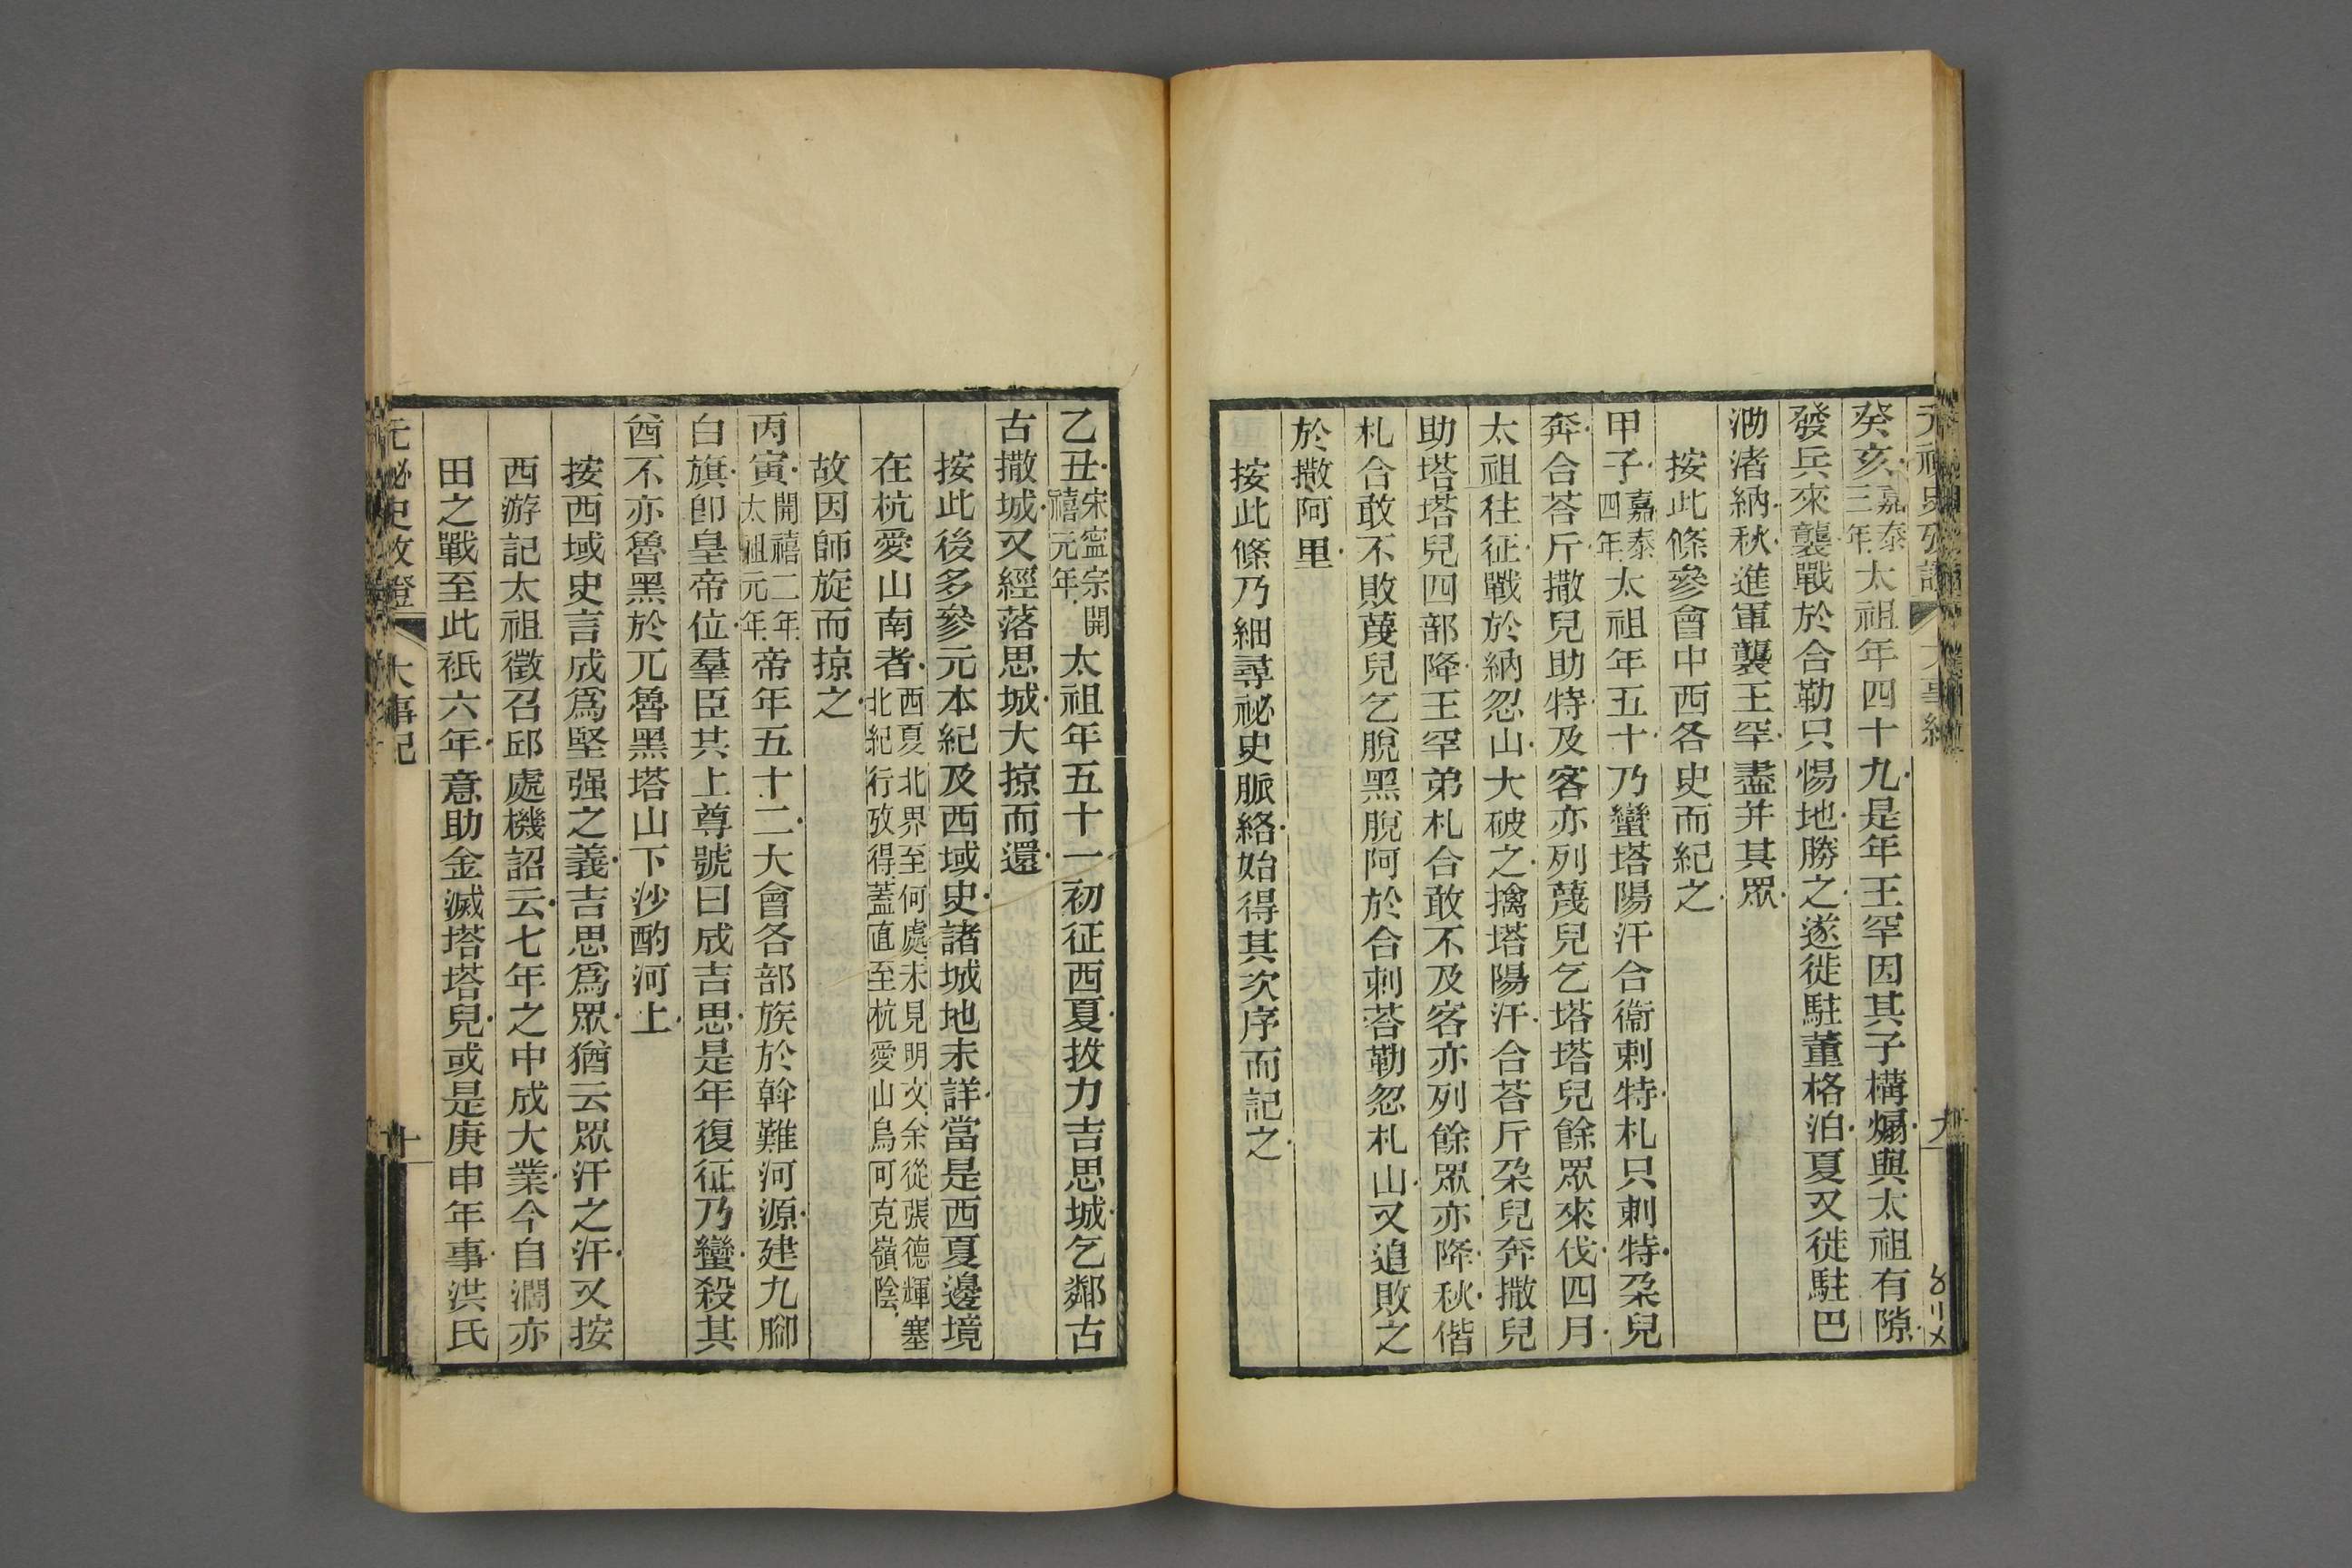 癸亥嘉泰三年太祖年四十九是年王罕因其子構煽與太祖有隙
發兵來襲戰於合勒只惕地勝之遂徙駐董格泊夏又徙駐巴
泐渚納秋進軍襲王罕盡并其眾
按此條參會中西各史而紀之
甲子嘉泰四年太祖年五十乃蠻塔陽汗合衞剌特札只剌特朶兒
奔合荅斤撒兒助特及客亦列蔑兒乞塔塔兒餘眾來伐四月
太祖往征戰於納忽山大破之擒塔陽汗合荅斤朶兒奔撒兒
助塔塔兒四部降王罕弟札合敢不及客亦列餘眾亦降秋偕
札合敢不敗蔑兒乞脫黑脫阿於合剌荅勒忽札山又追敗之
於撒阿里
按此條乃細尋祕史脈絡始得其次序而記之
乙丑宋寧宗開禧元年太祖年五十一初征西夏拔力吉思城乞鄰古
古撒城又經落思城大掠而還
按此後多參元本紀及西域史諸城地未詳當是西夏邊境
在杭愛山南者西夏北界至何處未見明文余從張德輝塞北紀行攷得蓋直至杭愛山烏可克嶺陰
故因師旋而掠之
丙寅開禧二年太祖元年帝年五十二大會各部族於斡難河源建九腳
白旗卽皇帝位羣臣共上尊號曰成吉思是年復征乃蠻殺其
酋不亦魯黑於兀魯黑塔山下沙酌河上
按西域史言成爲堅强之義吉思爲眾猶云眾汗之汗又按
西游記太祖徵召邱處機詔云七年之中成大業今自濶亦
田之戰至此祇六年意助金滅塔塔兒或是庚申年事洪氏
元祕史攷證 大事記 十